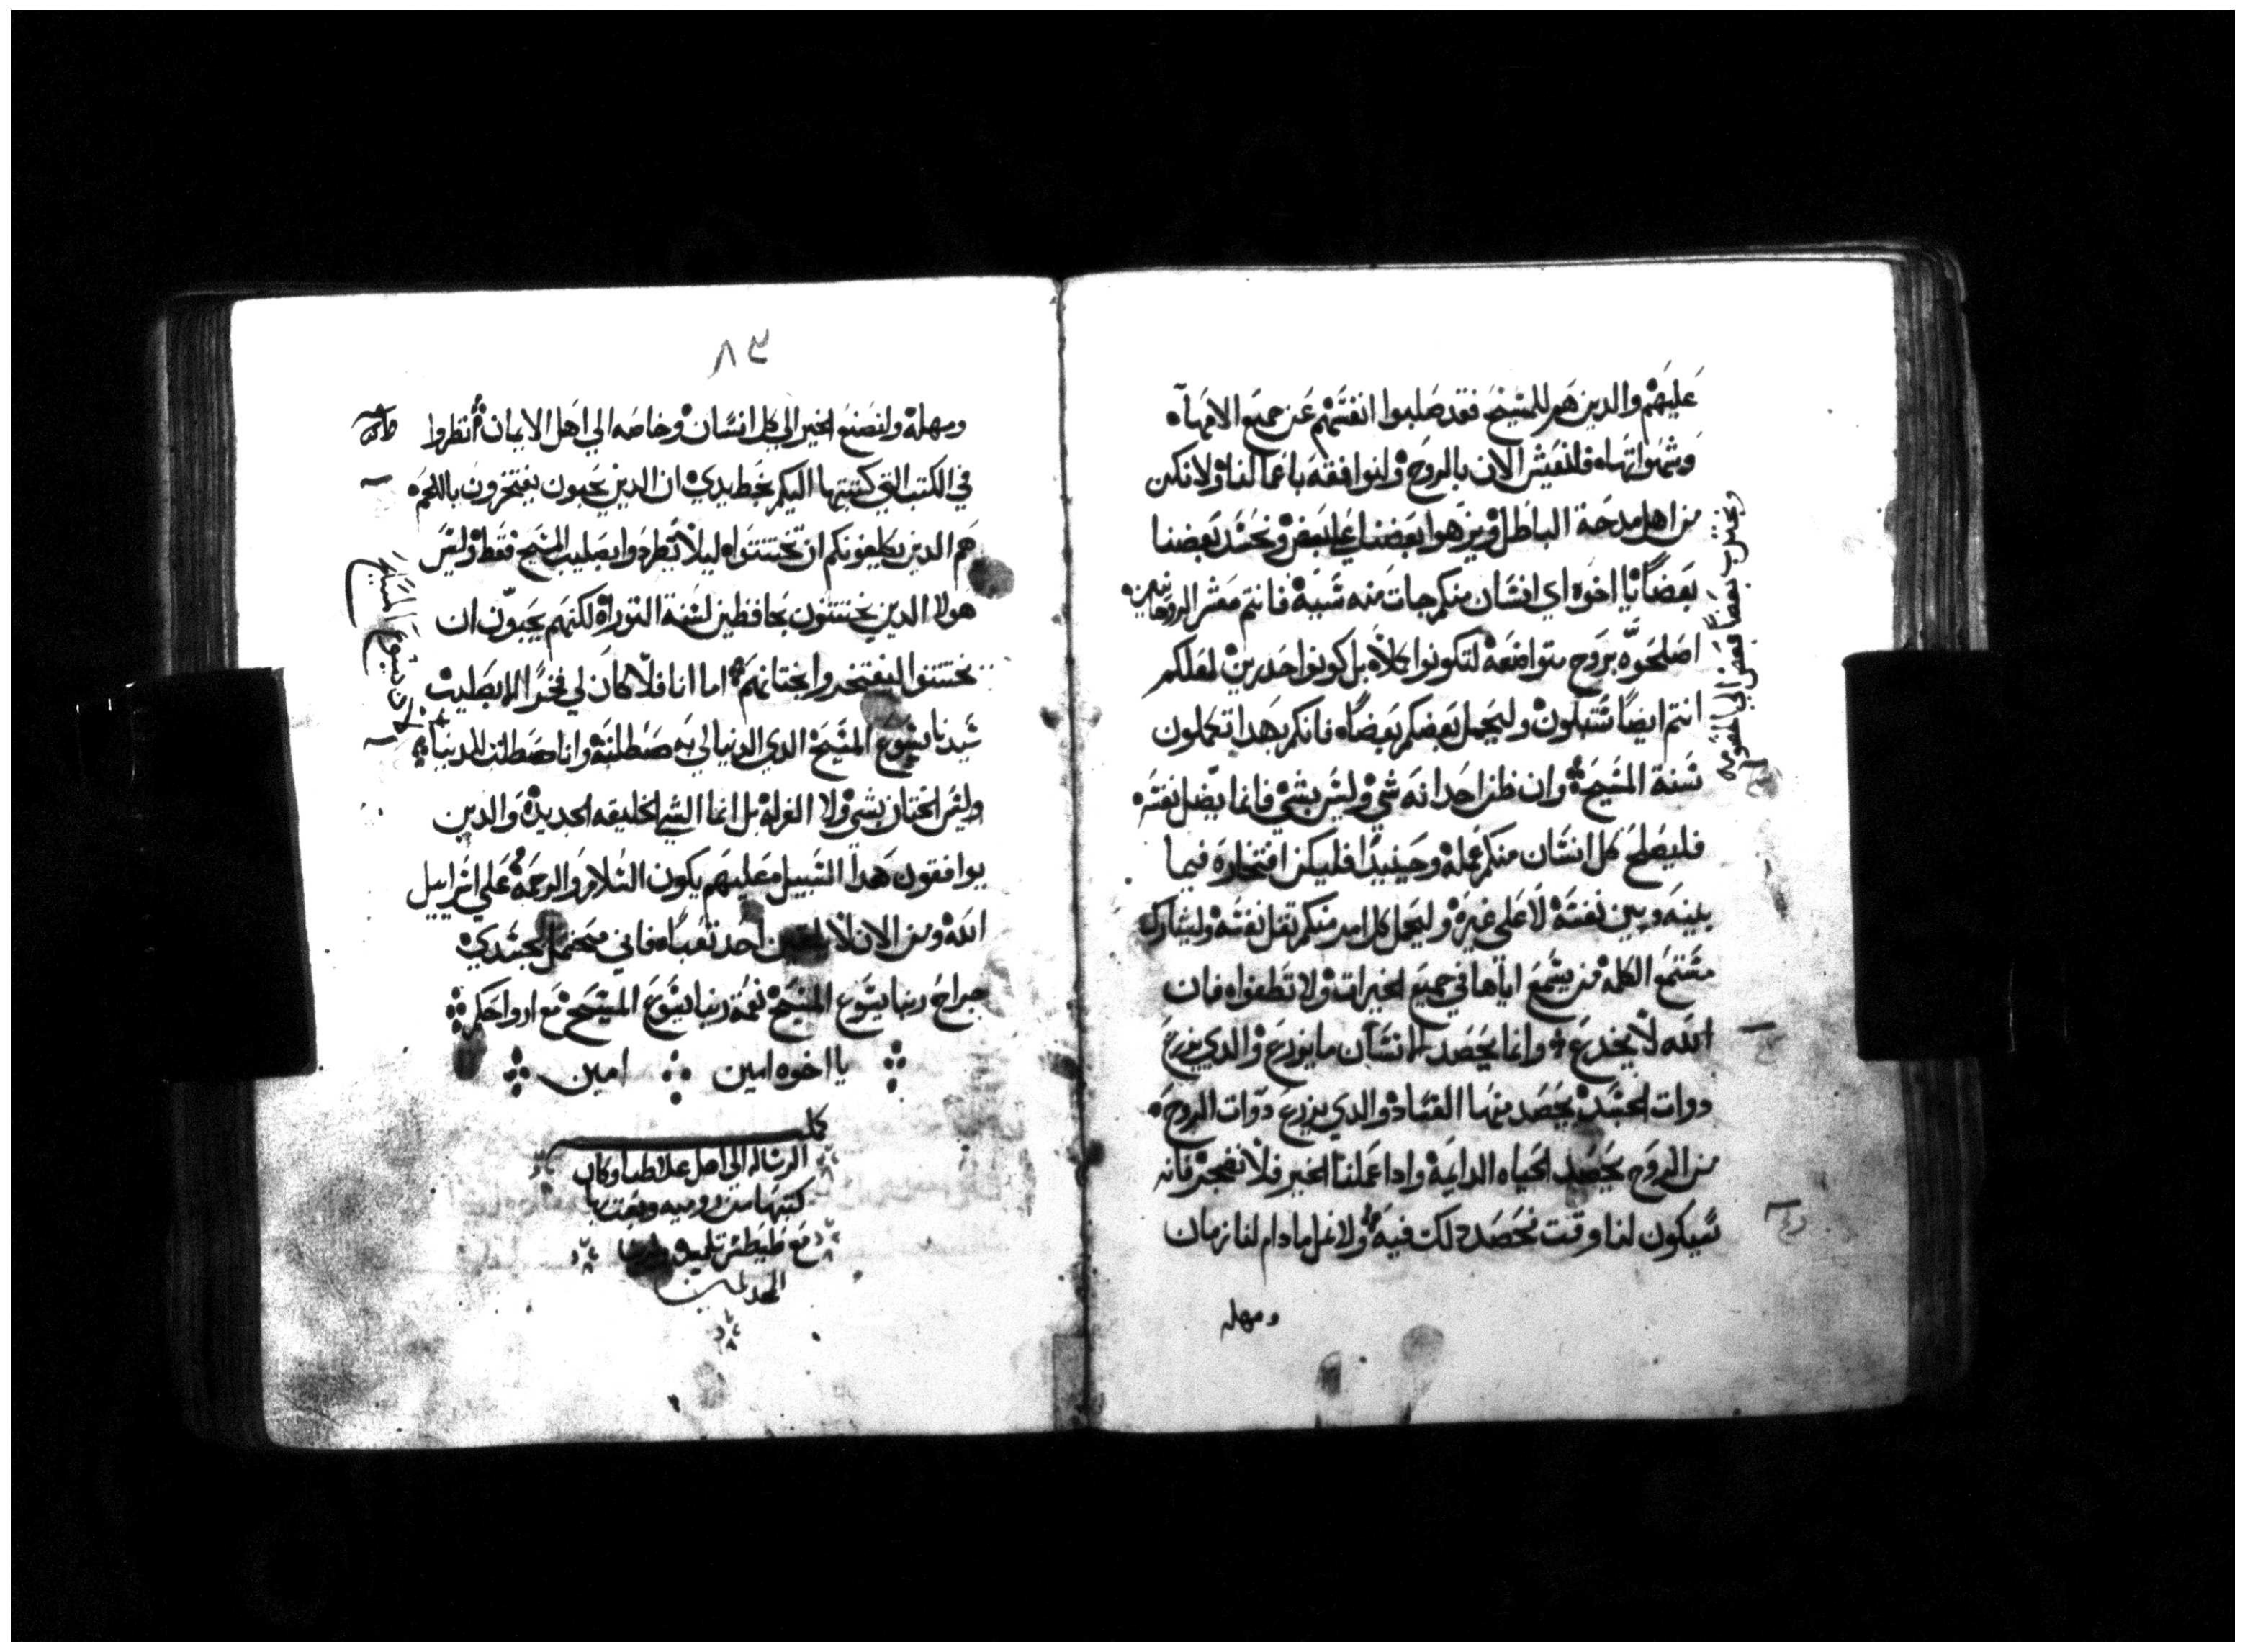 عليهم والدين هم للمسيح فقد صلبوا انفسهم عن جميع الامها
وشهواتها فلنعيش الان بالروح ولنوافقه باعمالنا ولا نكن
من اهل مدحة الباطل ويزهوا بعضنا علي بعض ونحسد بعضنا
بعضا يا اخوه اي انسان منكم جات منه سيه فانتم معشر الروحانيين
اصلحوه بروح متواضعه لتكونوا بل كونوا حدرين لعلكم
انتم ايضا تبتلون وليحمل بعضكم بعضا فانكم بهدا تكملون
سنة المسيح وان ظن احد انه شي وليس بشي فانما يضل نفسه
فليصلح كل انسان منكم عمله وحينيدا فليكن افتخاره فيما
بينه وبين نفسه لا علي غيره وليحمل كل امر منكم ثقل نفسه وليشارك
مستمع الكلمه من يسمع اياها في جميع الخيرات ولا تطغوا فان
الله لا يخدع وانما يحصد الانسان ما يزرع والدي يزرع
دوات الجسد يحصد منها الفساد والدي يزرع دوات الروح
من الروح يحصد الحياه الدايمة وادا عملنا الخير فلا نضجر فانه
سيكون لنا وقت نحصد دلك فيه ولا نمل ما دام لنا زمان
ومهله
٨٣
ومهله ولنصنع الخير الي كل انسان وخاصه الي اهل الايمان انظروا
في الكتب التي كتبتها اليكم بخط يدي ان الدين يحبون يفتخرون باللحم
هم الدين يكلفونكم ان تختتنوا ليلا يطردوا بصليب المسيح فقط وليس
هولا الدين يختتنون بحافظين لسنة التوراه لكنهم يحبون ان
تختتنوا ليفتخروا بختانهم اما انا فلا كان لي فخرا الا بصليب
سيدنا يسوع المسيح الدي الدنيا لي به صطلبه وانا صطلبت للدنيا
وليس الختان بشي ولا الغرله بل انما الشي الخليقه الجديده والدين
يوافقون هدا السبيل معليهم يكون السلام والرحمه علي اسراييل
الله ومن الان لا احد تعبا فاني متحمل بجسدي
جراح ربنا يسوع المسيح نعمة ربنا يسوع المسيح مع ارواحكم
يا اخوه امين امين
كملت
الرساله الي اهل غلاطيا وكان
كتبها من روميه وبعث بها
مع طيطس تلميده